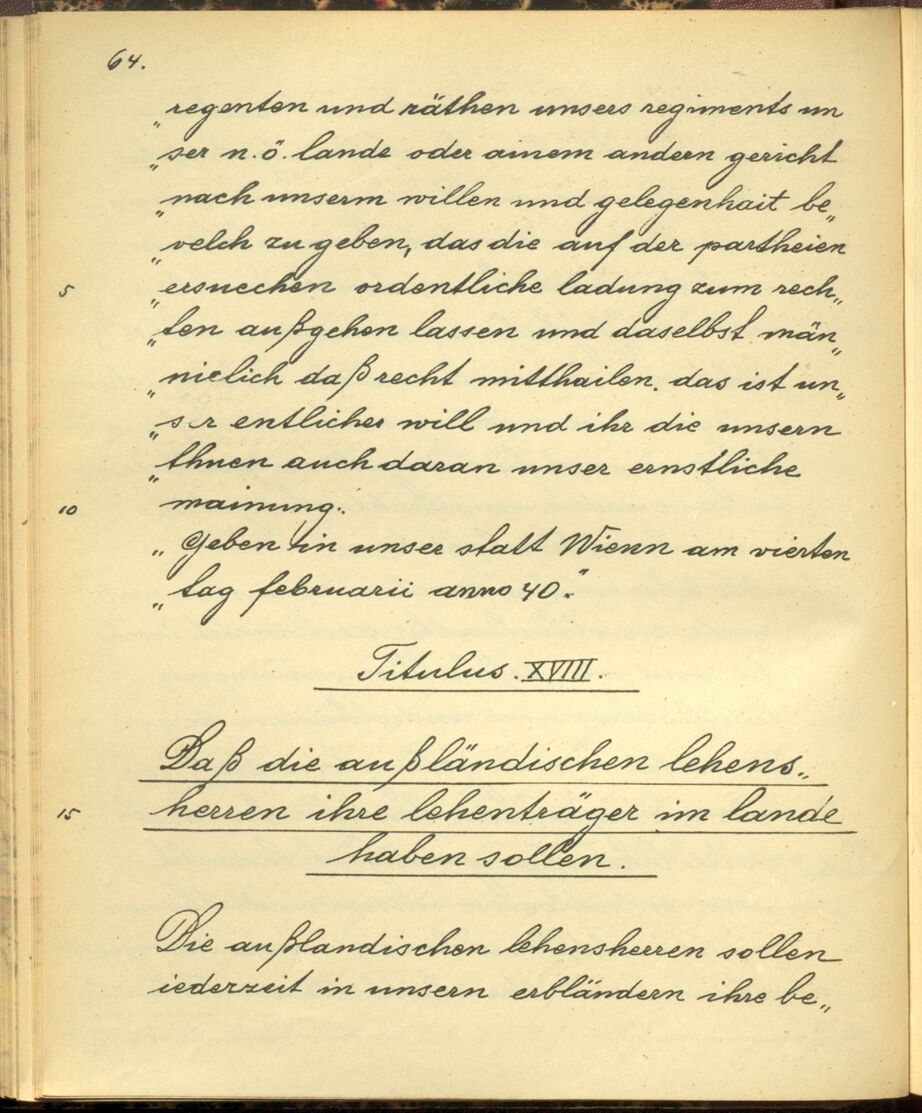 64.
„regenten und räthen unsers regiments un
„ser n.ö. lande oder ainem andern gericht
„nach unserm willen und gelegenhait be„
„velch zu geben, das die auf der partheien
5 „ersuechen ordentliche ladung zum rech„
„ten außgehen lassen und daselbst män„
„niclich daß recht mitthailen. das ist un„
„ser entlicher will und ihr die unsern
„thuen auch daran unser ernstliche
10 „mainung.
„Geben in unser statt Wienn am vierten
„tag februarii anno 40."
Titulus. XVIII.
Daß die außländischen lehens„
15 herren ihre lehenträger im lande
haben sollen.
Die außlandischen lehensherren sollen
iederzeit in unsern erbländern ihre be„